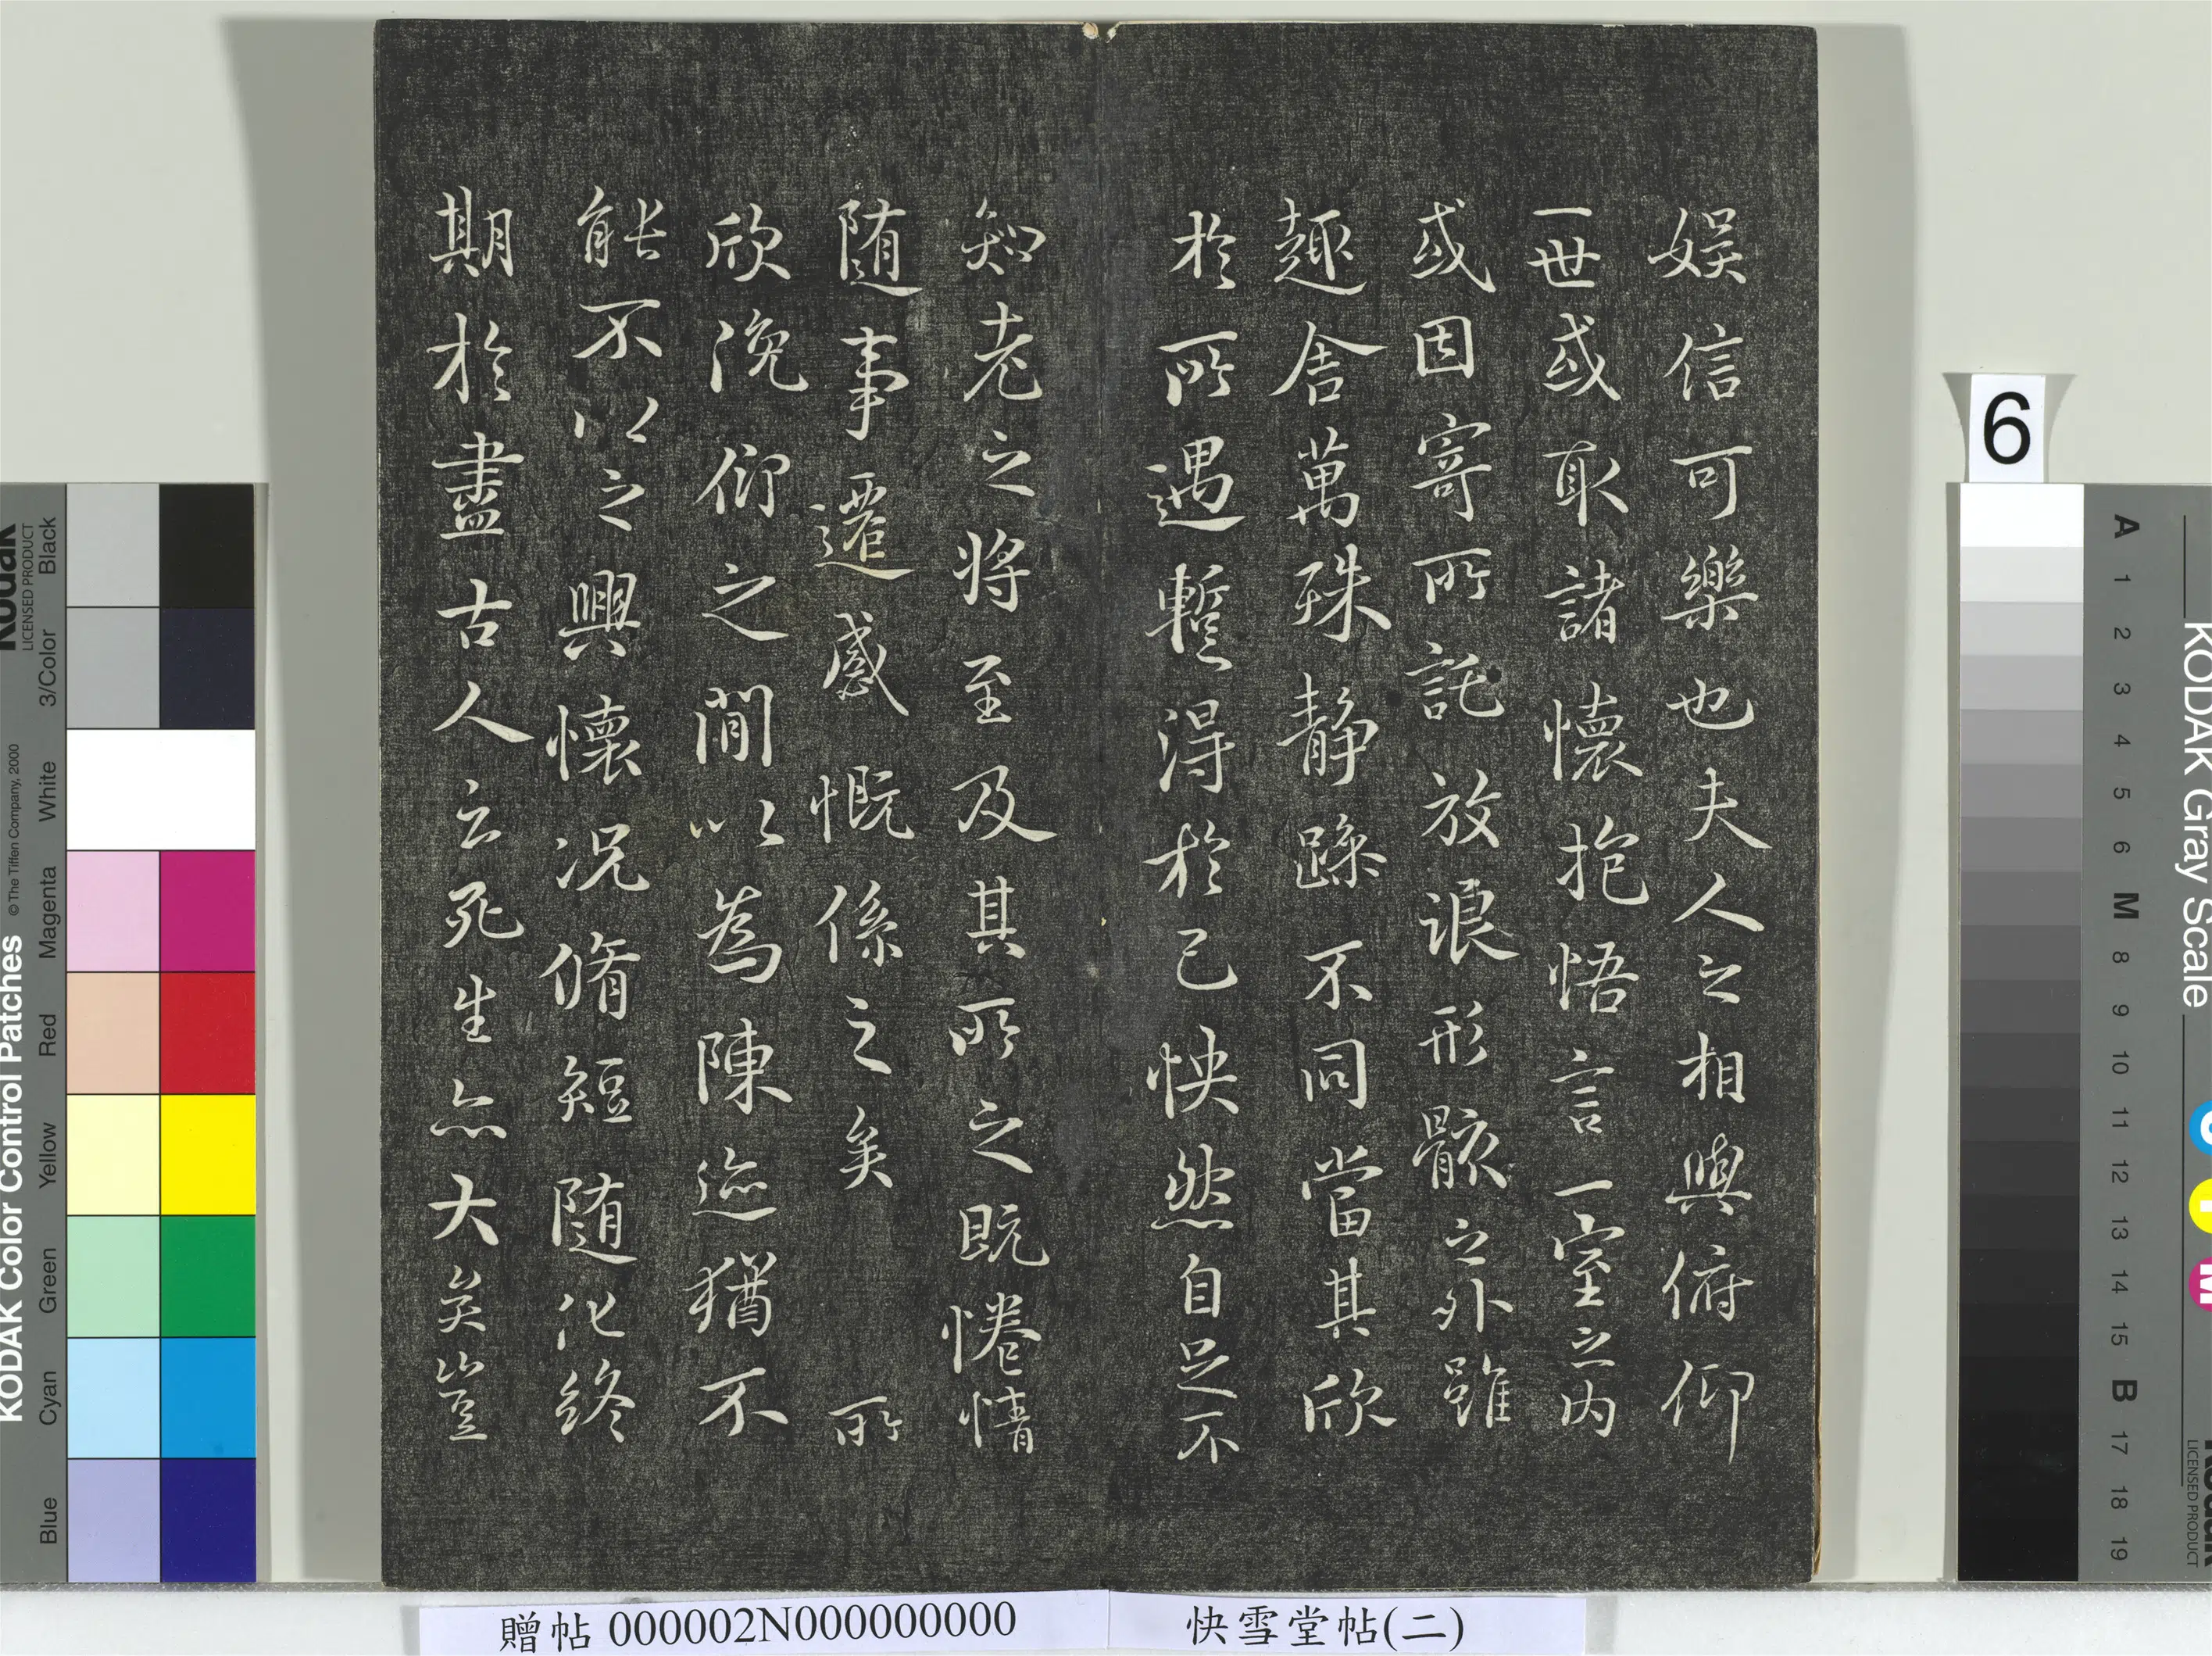 娛信可樂也夫人之相與俯仰
一世或取諸懷抱悟言一室之內
或因寄所託放浪形骸之外雖
趣舍萬殊靜躁不同當其欣
於所遇暫得於己怏然自足不
知老之將至及其所之既惓情
随事遷感慨係之矣 所
欣俛仰之閒以為陳迹猶不
能不以之興懷况脩短随化終
期於盡古人云死生亦大矣豈
贈帖 000002N000000000
快雪堂帖(二)
6
KODAK Color Control Patches
© The Tiffen Company, 2000
Kodak
LICENSED PRODUCT
Black
3/Color
White
Magenta
Red
Yellow
Green
Cyan
Blue
KODAK Gray Scale
A 1 2 3 4 5 6 M 8 9 10 11 12 13 14 15 B 17 18 19
C
Y
M
Kodak
LICENSED PRODUCT